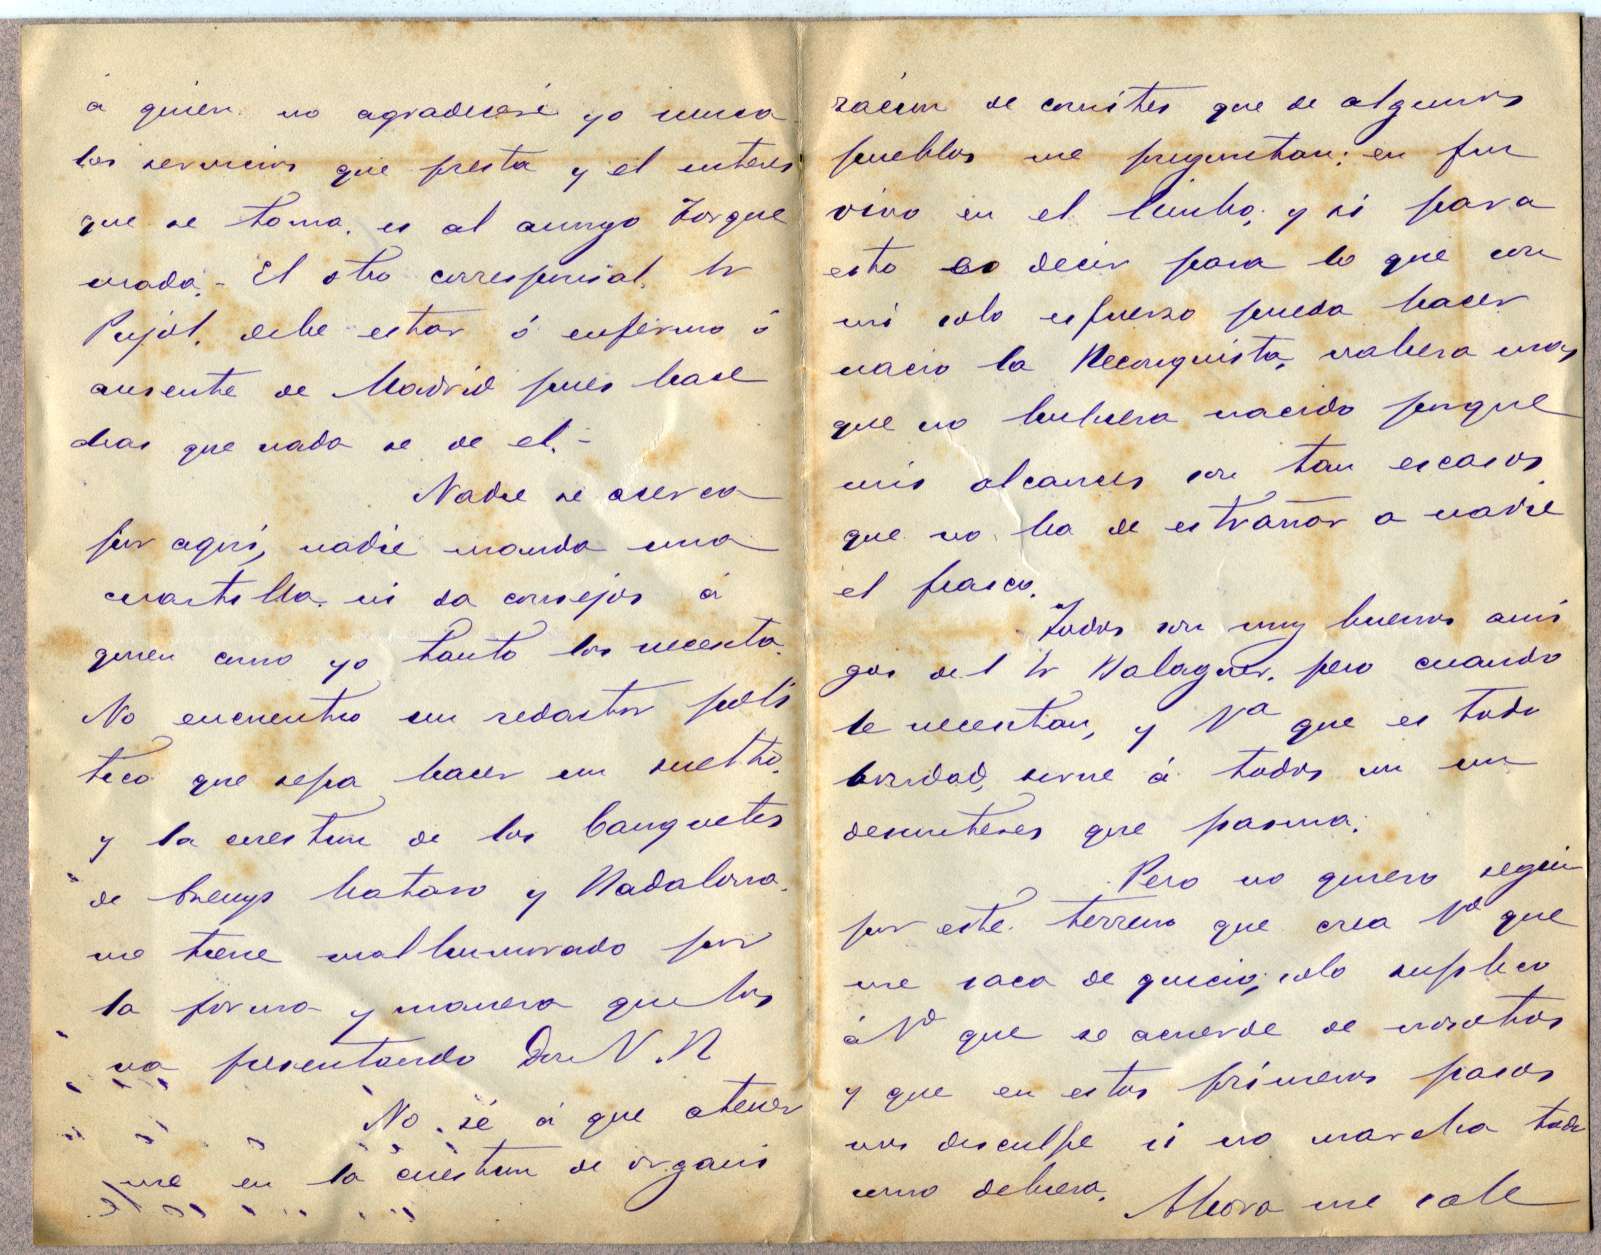 á quien no agradeceré yo nunca
los servicios que presta y el interes
que se toma, es al amigo Torque
mada.- El otro corresponsal, Sr
Pujol, debe estar ó enfermo ó
ausente de Madrid pues hace
dias que nada se de el.-
Nadie se acerca
por aquí, nadie manda una
cuartilla, ni da consejos á
quien como yo tanto los necesita.
No encuentro un redactor polí
tico que sepa hacer un suelto,
y la cuestion de los banquetes
de Arenys Mataro y Badalona,
me tiene malhumorado por
la forma y manera que los
va presentando Don V. B
No sé á que atener
me en la cuestion de organi
zacion de comites que de algunos
pueblos me preguntan; en fin
vivo en el limbo, y si para
esto es decir para lo que con
mi solo esfuerzo pueda hacer
nacio la Reconquista, valiera mas
que no hubiera nacido porque
mis alcances son tan escasos
que no ha de estrañar a nadie
el fiasco.
Todos son muy buenos ami
gos del Sr Balaguer, pero cuando
le necesitan, y Vd que es todo
bondad, sirve á todos con un
desinteres que pasma.
Pero no quiero seguir
por este terreno que crea Vd que
me saca de quicio; solo suplico
á Vd que se acuerde de nosotros
y que en estos primeros pasos
nos disculpe si no marcha todo
como debiera. Ahora me sale